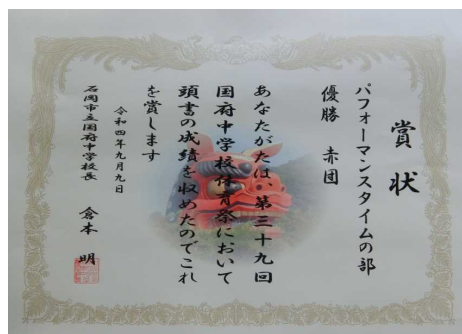 賞状
パフォーマンスタイムの部
優勝　赤団
あなたがたは　第三十九回
国府中学校体育祭において
頭書の成績を収めたのでこれ
を賞します
令和四年九月九日
石岡市立国府中学校長　倉本　明